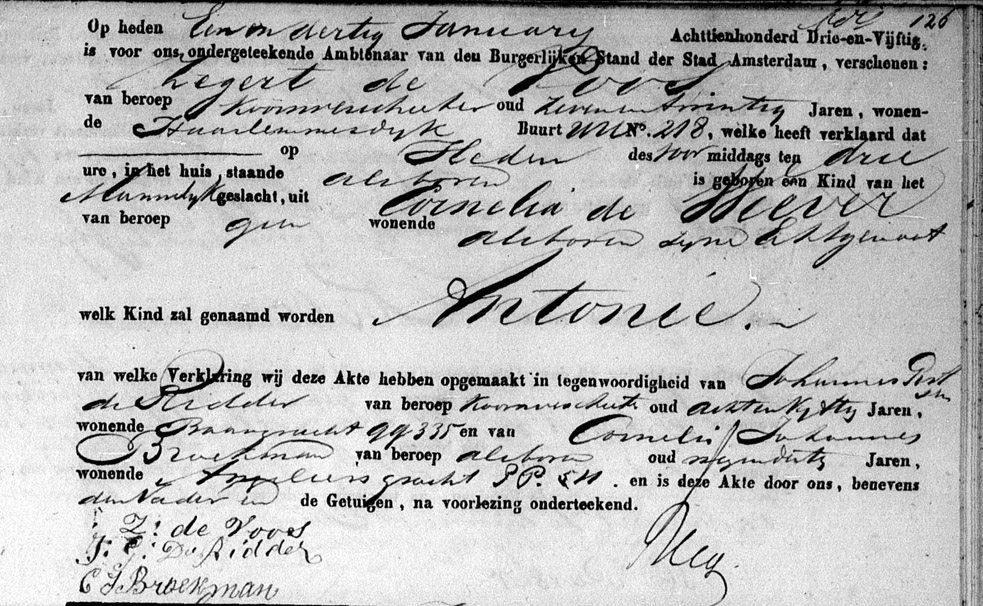 126
Op heden Een en dertig January Achttienhonderd Drie-en-Vijftig,
is voor ons, ondergeteekende Ambtenaar van den Burgerlijken Stand der Stad Amsterdam, verschenen:
Zegert de Voos
van beroep Koornverschieter oud zeven en twintig Jaren, wonen-
de Haarlemmerdyk Buurt No. 218, welke heeft verklaard dat
op Heden des voor middags ten drie
ure, in het huis, staande alsboven is geboren een Kind van het
Mannelyk geslacht, uit Cornelia de Wever
van beroep geen wonende alsboven zyne Echtgenoot
welk Kind zal genaamd worden Antonie.
van welke Verklaring wij deze Akte hebben opgemaakt in tegenwoordigheid van Johannes
de Ridder van beroep Koornverschieter oud acht en vyftig Jaren,
wonende Baangracht 99 335 en van Cornelis Johannes
Broekman van beroep alsboven oud negendertig Jaren,
wonende Angeliersgracht PP. 511. en is deze Akte door ons, benevens
den Vader en de Getuigen, na voorlezing onderteekend.
Z: de Voos
J. C. De Ridder
C J Broekman